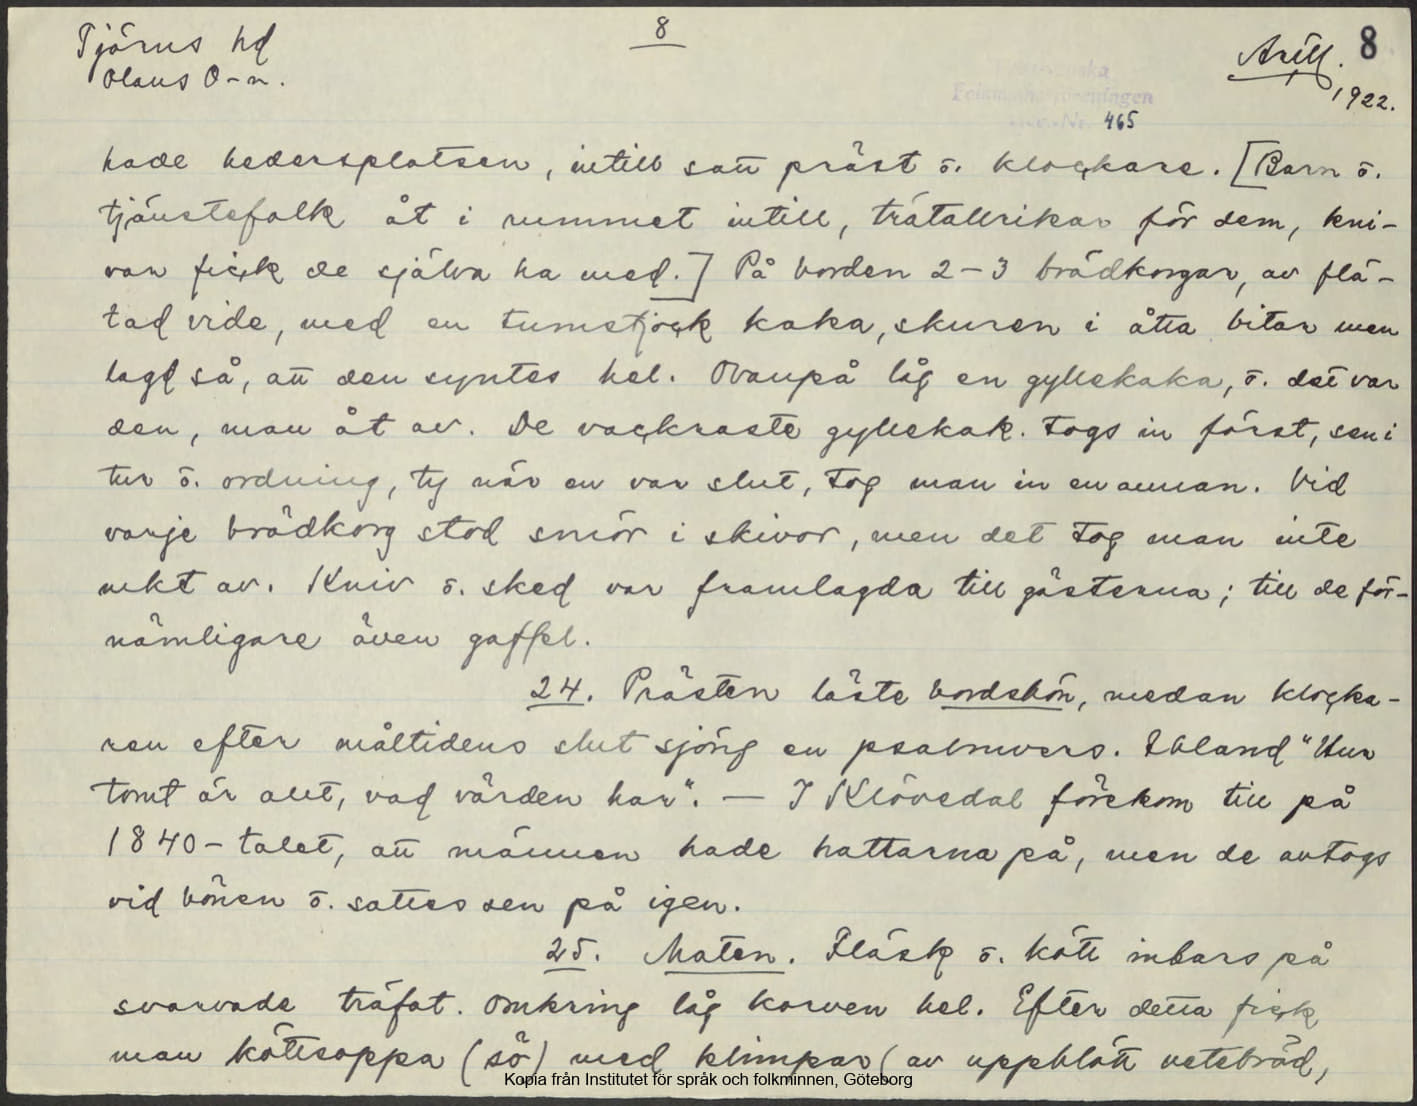 Tjörns hd
Olaus O-n.
8
Arill. 8
1922.
465
hade hedersplatsen, intill satt präst o. klockare. [Barn o.
tjänstefolk åt i rummet intill, trätallrikar för dem, kni-
var fick de själva ha med.] På borden 2-3 brödkorgar, av flä-
tad vide, med en tumstjock kaka, skuren i åtta bitar men
lagd så, att den syntes hel. Ovanpå låg en gyllekaka, o. det var
den, man åt av. De vackraste gyllekak. togs in först, sen i
tur o. ordning, ty när en var slut, tog man in en annan. Vid
varje brödkorg stod smör i skivor, men det tog man inte
nket av. Kniv o. sked var framlagda till gästerna; till de för-
nämligare även gaffel.
24. Prästen läste bordsbön, medan klocka-
ren efter måltidens slut sjöng en psalmvers. Ibland "Hur
tomt är allt, vad världen har". — I Klövedal förekom till på
1840-talet, att männen hade hattarna på, men de avtogs
vid bönen o. sattes sen på igen.
25. Maten. Fläsk o. kött inbars på
svarvade träfat. Omkring låg korven hel. Efter detta fick
man köttsoppa (sö) med klimpar (av uppblött vetebröd,
Kopia från Institutet för språk och folkminnen, Göteborg